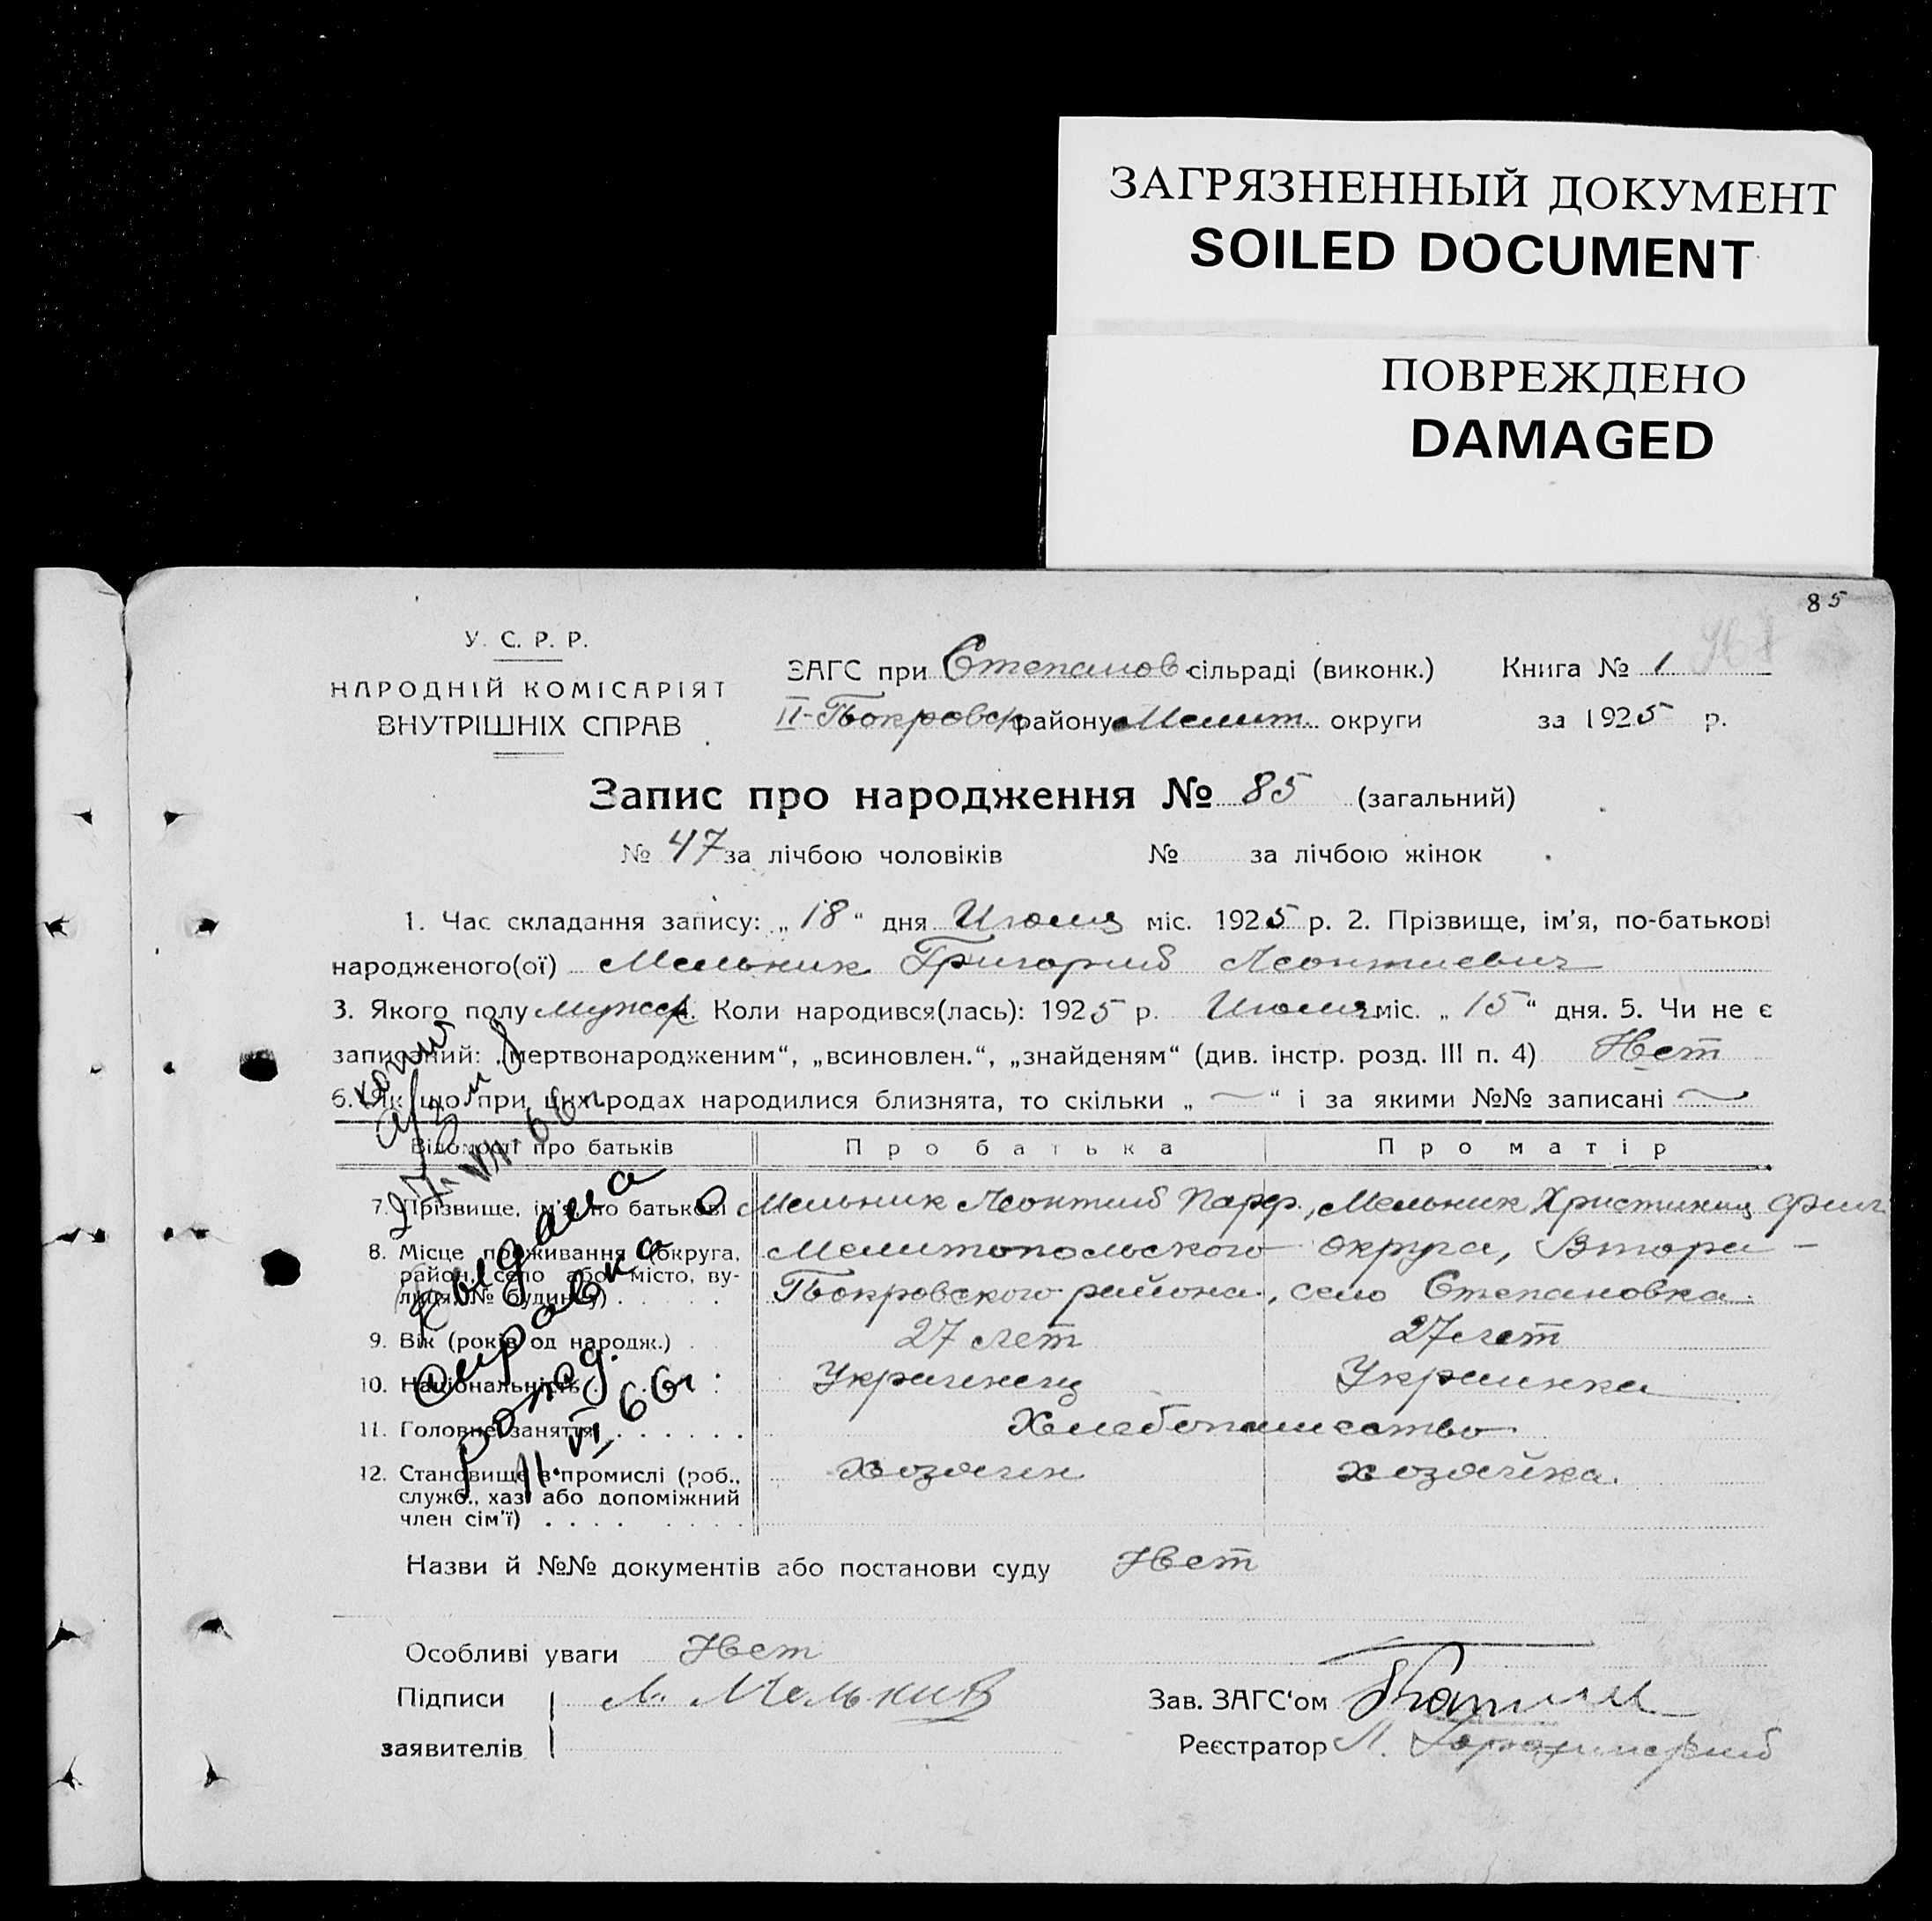 ЗАГРЯЗНЕННЫЙ ДОКУМЕНТ
SOILED DOCUMENT
ПОВРЕЖДЕНО
DAMAGED
85
У. С. Р. Р.
НАРОДНІЙ КОМІСАРІЯТ
ВНУТРІШНІХ СПРАВ
ЗАГС при Степанов сільраді (виконк.) Книга № 1
II-Покровск району Мелит. округи за 1925 р.
Запис про народження № 85 (загальний)
№ 47 за лічбою чоловіків № за лічбою жінок
1. Час складання запису: „18“ дня Июля міс. 1925 р. 2. Прізвище, ім'я, по-батькові
народженого(ої) Мельник Григорий Леонтиевич
3. Якого полу мужск 4. Коли народився(лась): 1925 р. Июля міс. „15“ дня. 5. Чи не є
записаний: „мертвонародженим“, „всиновлен.“, „знайденям“ (див. інстр. розд. III п. 4) Нет
6. Як що при цих родах народилися близнята, то скільки „ — “ і за якими №№ записані —
Відомості про батьків Про батька Про матір
7. Прізвище, ім'я, по батькові Мельник Леонтий Парф., Мельник Христиния Фил
8. Місце проживання (округа, Мелитопольского округа, Второ-
район, село або місто, ву- Покровского района, село Степановка.
лиця, № будинку) . . . . .
9. Вік (років од народж.) . 27 лет 27 лет
10. Національність . . . . Украинец Украинка
11. Головне заняття . . . . . . Хлебопашество
12. Становище в промислі (роб., хозяин хозяйка.
служб., хаз. або допоміжний
член сім'ї) . . . .
Назви й №№ документів або постанови суду Нет
Особливі уваги Нет
Підписи Л. Мельник
заявителів
Зав. ЗАГС'ом
Реєстратор Л.
копия
Выдана
справка
о рожд.
11 VI 66г